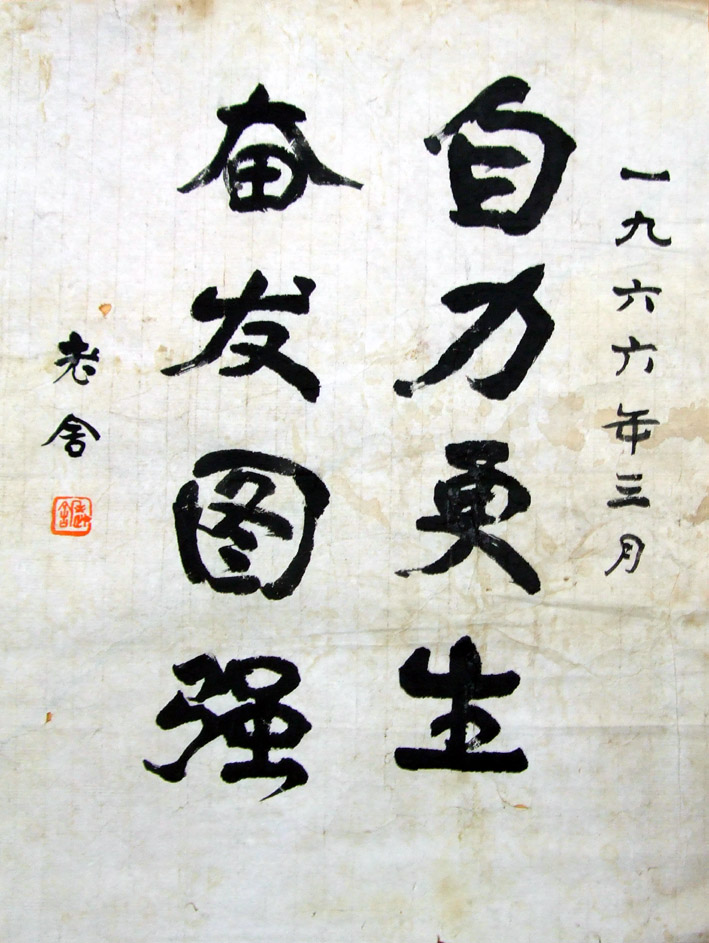 一九六六年三月
自力更生
奋发图强
老舍
老舍